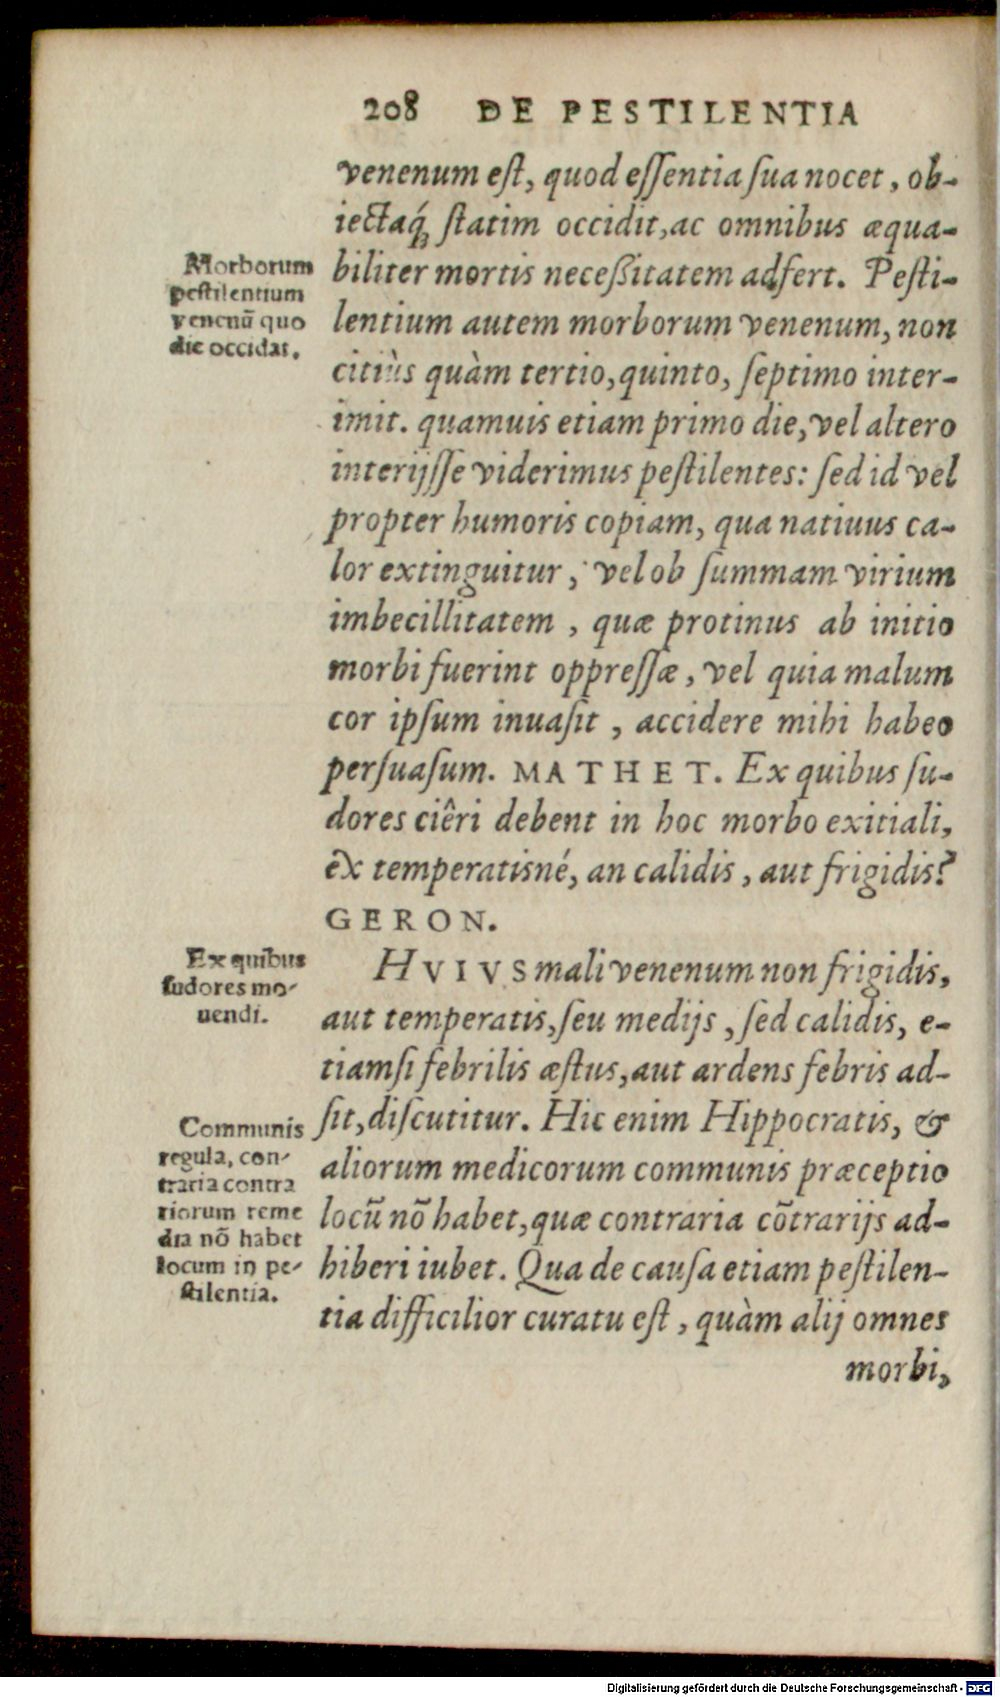 208 DE PESTILENTIA
venenum est, quod essentia sua nocet, ob-
iectaq́; statim occidit, ac omnibus æqua-
biliter mortis neceßitatem adfert. Pesti-
lentium autem morborum venenum, non
citiùs quàm tertio, quinto, septimo inter-
imit. quamuis etiam primo die, vel altero
interijsse viderimus pestilentes: sed id vel
propter humoris copiam, qua natiuus ca-
lor extinguitur, vel ob summam virium
imbecillitatem, quæ protinus ab initio
morbi fuerint oppressæ, vel quia malum
cor ipsum inuasit, accidere mihi habeo
persuasum. MATHET. Ex quibus su-
dores ciêri debent in hoc morbo exitiali,
êx temperatisné, an calidis, aut frigidis?
GERON.
HVIVS mali venenum non frigidis,
aut temperatis, seu medijs, sed calidis, e-
tiamsi febrilis æstus, aut ardens febris ad-
sit, discutitur. Hic enim Hippocratis, &
aliorum medicorum communis præceptio
locũ nõ habet, quæ contraria cõtrarijs ad-
hiberi iubet. Qua de causa etiam pestilen-
tia difficilior curatu est, quàm alij omnes
morbi,
Morborum
pestilentium
venenũ quo
die occidat.
Ex quibus
sudores mo-
uendi.
Communis
regula, con-
traria contra
riorum reme
dia nõ habet
locum in pe-
stilentia.
Digitalisierung gefördert durch die Deutsche Forschungsgemeinschaft - DFG